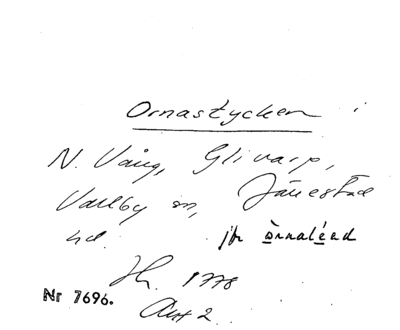 Ornastycken i
N. Vång, Glivarp,
Vallby sn, Järrestad
hd. jfr òrnaléed
Jh. 1778
Nr 7696. Akt 2